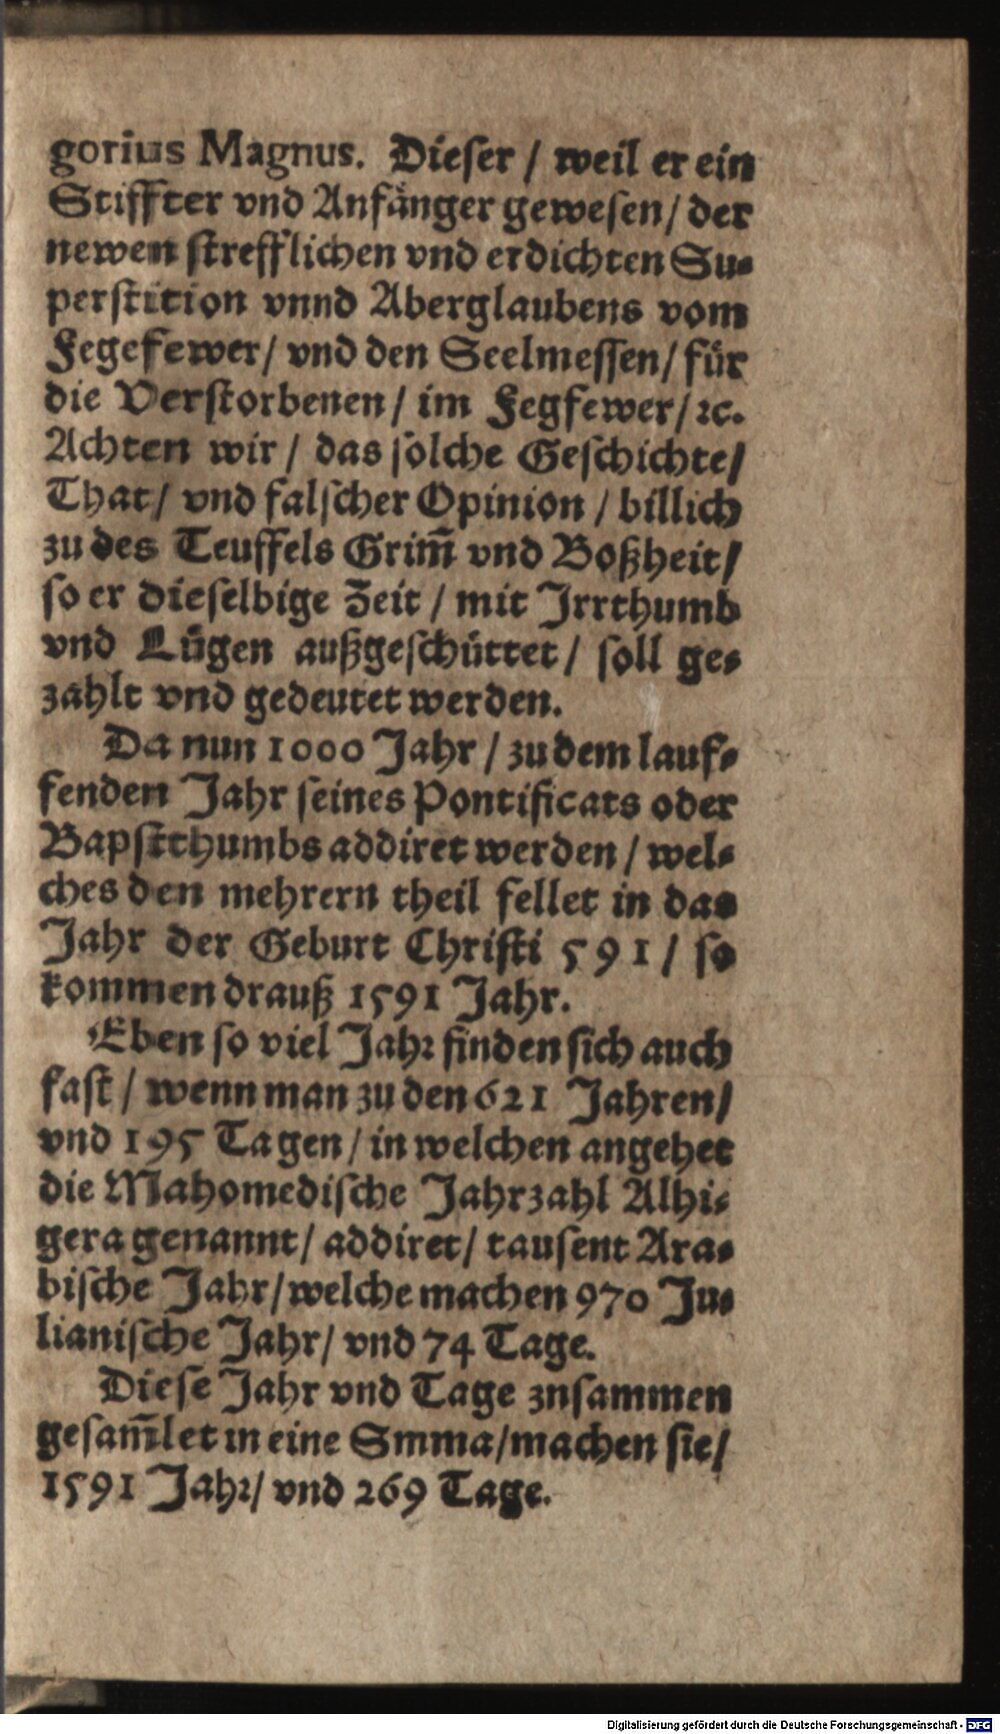 gorius Magnus. Dieser / weil er ein
Stiffter vnd Anfänger gewesen / der
newen strefflichen vnd erdichten Su-
perstition vnnd Aberglaubens vom
Fegefewer / vnd den Seelmessen / für
die Verstorbenen / im Fegfewer / ꝛc.
Achten wir / das solche Geschichte /
That / vnd falscher Opinion / billich
zu des Teuffels Grim̃ vnd Boßheit /
so er dieselbige Zeit / mit Jrrthumb
vnd Lügen außgeschüttet / soll ge-
zahlt vnd gedeutet werden.
Da nun 1000 Jahr / zu dem lauf-
fenden Jahr seines Pontificats oder
Bapstthumbs addiret werden / wel-
ches den mehrern theil fellet in das
Jahr der Geburt Christi 591 / so
kommen drauß 1591 Jahr.
Eben so viel Jahr finden sich auch
fast / wenn man zu den 621 Jahren /
vnd 195 Tagen / in welchen angehet
die Mahomedische Jahrzahl Alhi-
gera genannt / addiret / tausent Ara-
bische Jahr / welche machen 970 Ju-
lianische Jahr / vnd 74 Tage.
Diese Jahr vnd Tage znsammen
gesam̃let in eine Smma / machen sie /
1591 Jahr / vnd 269 Tage.
Digitalisierung gefördert durch die Deutsche Forschungsgemeinschaft - DFG